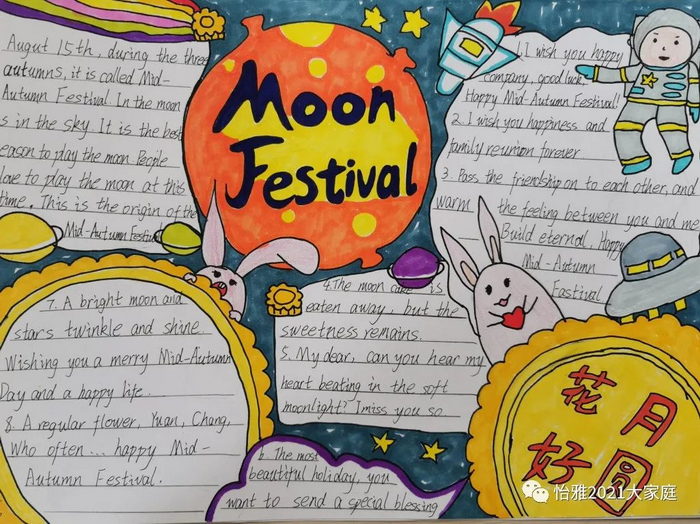 Moon
Festival
Augut 15th, during the three
autumns, it is called Mid-
Autumn Festival In the moon
s in the sky It is the best
eason to play the moon People
love to play the moon at this
time. This is the origin of the
Mid-Autumn Festival
1. I wish you happy
company, good luck,
Happy Mid-Autumn Festival!
2. I wish you happiness and
family reunion forever
3. Pass the friendship on to each other, and
warm the feeling between you and me
Build eternal, Happy
Mid-Autumn
Fastival
4. The moon cake is
eaten away, but the
sweetness remains.
5. My dear, can you hear my
heart beating in the soft
moonlight? I miss you so
6. The most
beautiful holiday, you
want to send a special blessing
7. A bright moon and
stars twinkle and shine.
Wishing you a merry Mid-Autumn
Day and a happy life.
8. A regular flower, Yuan, Chang,
Who often... happy Mid-
Autumn Festival.
花月
好圆
怡雅2021大家庭